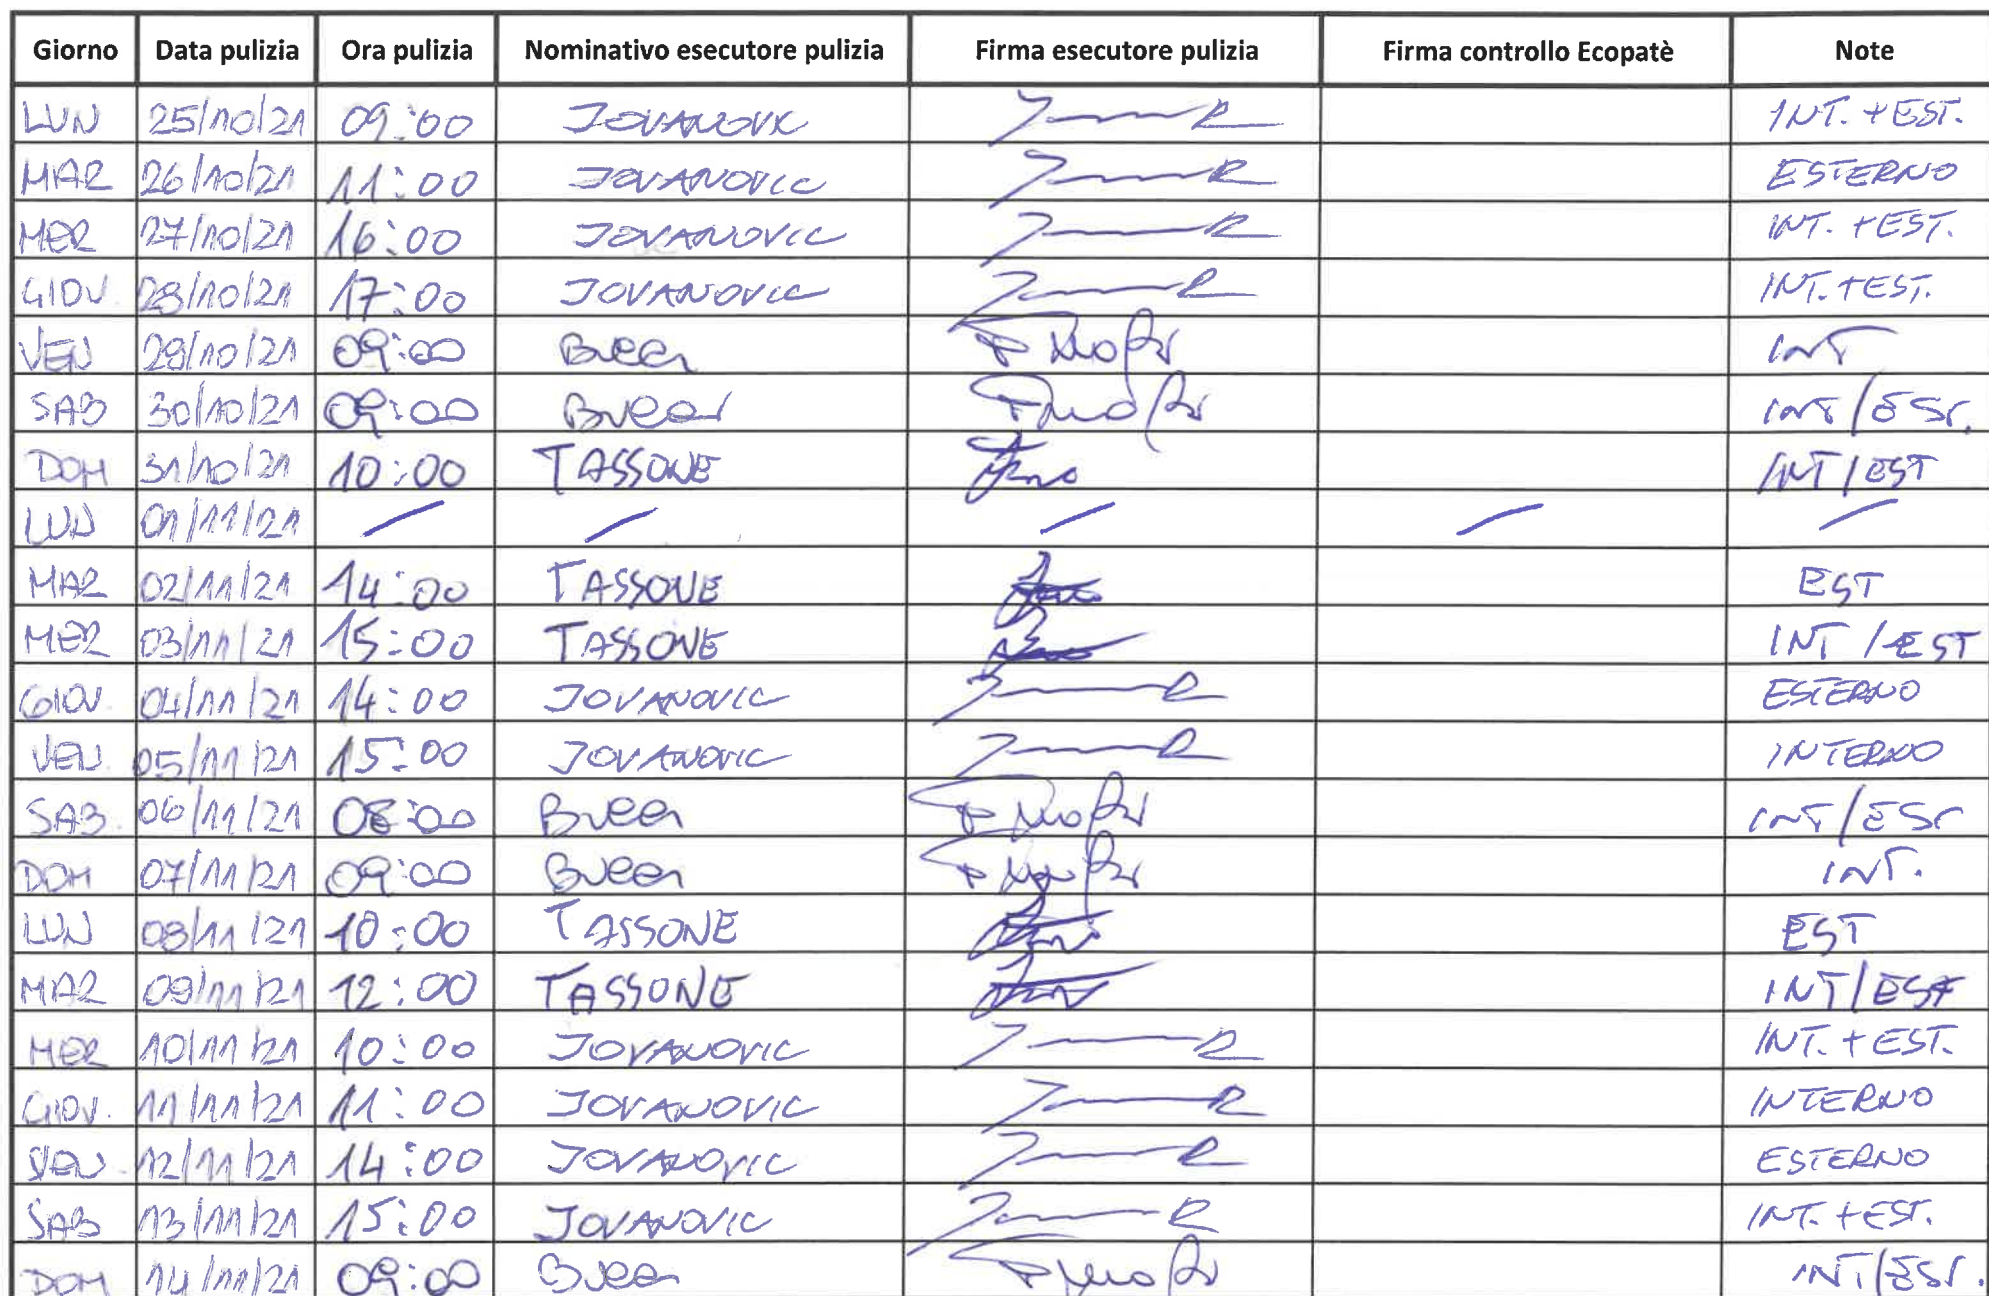 Giorno Data pulizia Ora pulizia Nominativo esecutore pulizia Firma esecutore pulizia Firma controllo Ecopatè Note
LUN 25/10/21 09:00 JOVANOVIC INT. + EST.
MAR 26/10/21 11:00 JOVANOVIC ESTERNO
MER 27/10/21 16:00 JOVANOVIC INT. + EST.
GIOV. 28/10/21 17:00 JOVANOVIC INT. + EST.
VEN 29/10/21 09:00 INT
SAB 30/10/21 09:00 INT/EST.
DOM 31/10/21 10:00 TASSONE INT/EST
LUN 01/11/21 / / / / /
MAR 02/11/21 14:00 TASSONE EST
MER 03/11/21 15:00 TASSONE INT/EST
GIOV. 04/11/21 14:00 JOVANOVIC ESTERNO
VEN. 05/11/21 15:00 JOVANOVIC INTERNO
SAB. 06/11/21 08:00 INT/EST
DOM 07/11/21 09:00 INT.
LUN 08/11/21 10:00 TASSONE EST
MAR 09/11/21 12:00 TASSONE INT/EST
MER 10/11/21 10:00 JOVANOVIC INT. + EST.
GIOV. 11/11/21 11:00 JOVANOVIC INTERNO
VEN. 12/11/21 14:00 JOVANOVIC ESTERNO
SAB 13/11/21 15:00 JOVANOVIC INT. + EST.
DOM 14/11/21 09:00 INT/EST.